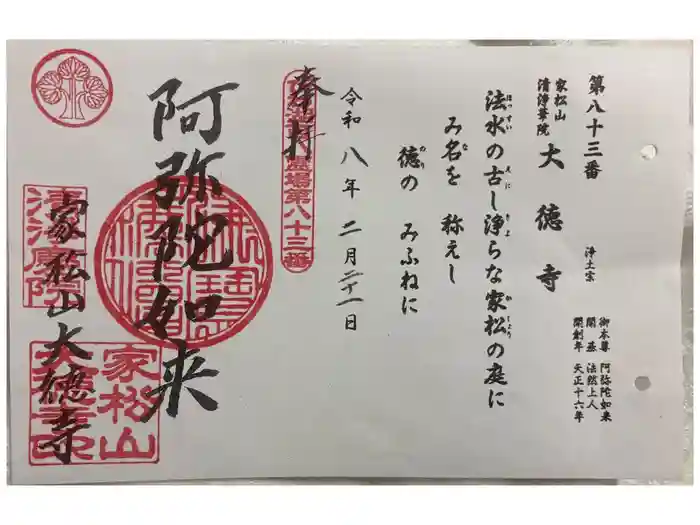 第八十三番
家松山
清浄華院
大徳寺
浄土宗
御本尊 阿弥陀如来
開基 法然上人
開創年 天正十六年
法水の古し浄らな家松の庭に
み名を 称えし
徳の みふねに
令和八年二月二十一日
奉拝
霊場第八十三番
阿弥陀如来
家松山大徳寺
家松山